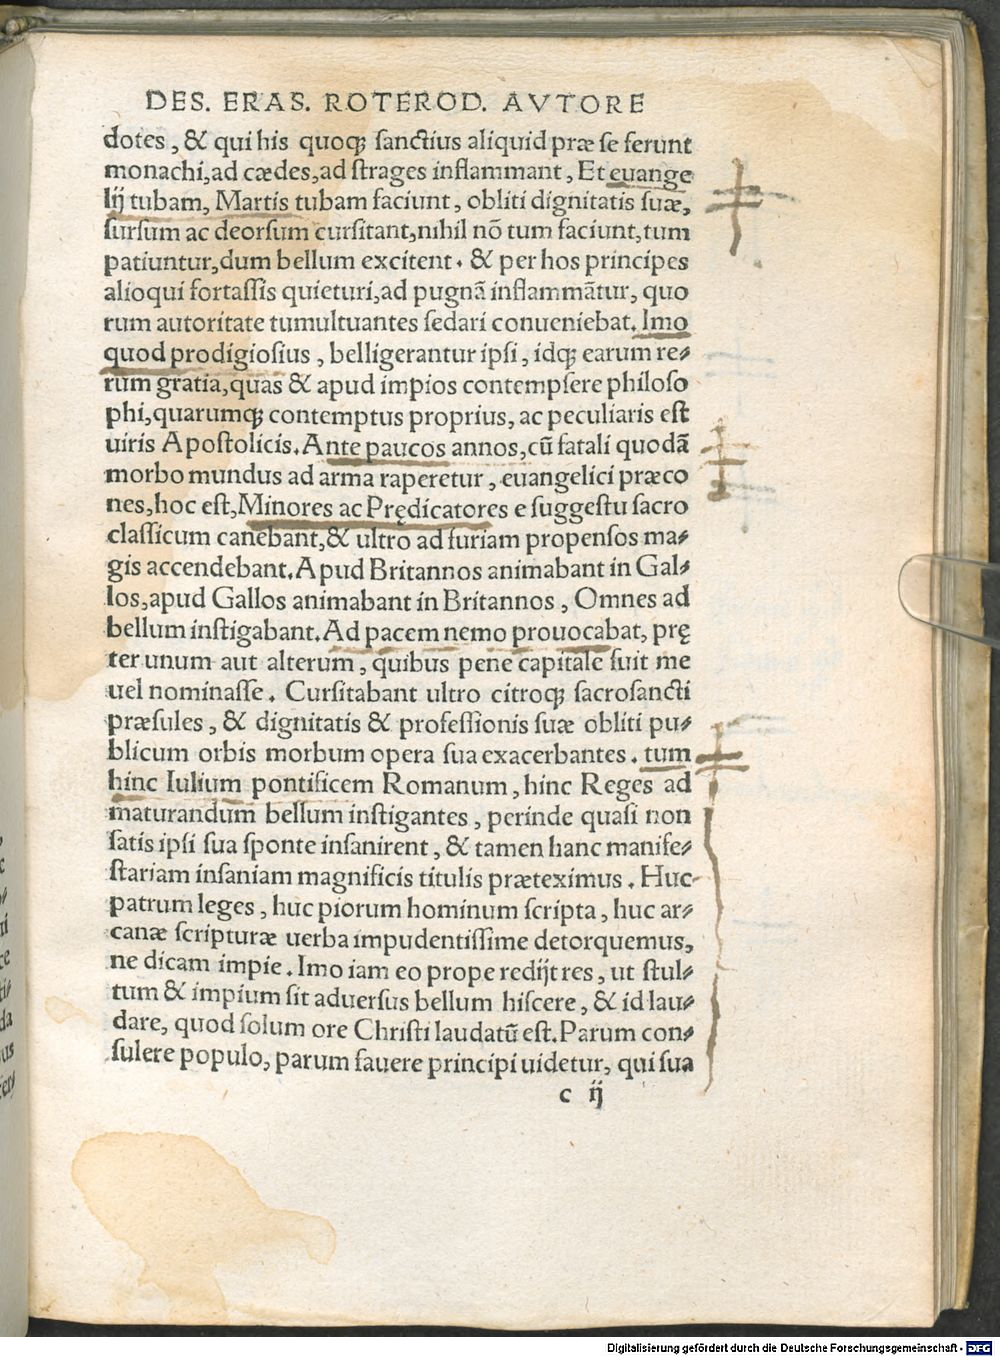 DES. ERAS. ROTEROD. AVTORE
dotes, & qui his quoqꝫ sanctius aliquid præ se ferunt
monachi, ad cædes, ad strages inflammant, Et euange
lij tubam, Martis tubam faciunt, obliti dignitatis suæ,
sursum ac deorsum cursitant, nihil nõ tum faciunt, tum
patiuntur, dum bellum excitent. & per hos principes
alioqui fortassis quieturi, ad pugnã inflammãtur, quo
rum autoritate tumultuantes sedari conueniebat. Imo
quod prodigiosius, belligerantur ipsi, idqꝫ earum re⸗
rum gratia, quas & apud impios contempsere philoso
phi, quarumqꝫ contemptus proprius, ac peculiaris est
uiris Apostolicis. Ante paucos annos, cũ fatali quodã
morbo mundus ad arma raperetur, euangelici præco
nes, hoc est, Minores ac Prędicatores e suggestu sacro
classicum canebant, & ultro ad furiam propensos ma⸗
gis accendebant. Apud Britannos animabant in Gal⸗
los, apud Gallos animabant in Britannos, Omnes ad
bellum instigabant. Ad pacem nemo prouocabat, prę
ter unum aut alterum, quibus pene capitale fuit me
uel nominasse. Cursitabant ultro citroqꝫ sacrosancti
præsules, & dignitatis & professionis suæ obliti pu⸗
blicum orbis morbum opera sua exacerbantes. tum
hinc Iulium pontificem Romanum, hinc Reges ad
maturandum bellum instigantes, perinde quasi non
satis ipsi sua sponte insanirent, & tamen hanc manife⸗
stariam insaniam magnificis titulis præteximus. Huc
patrum leges, huc piorum hominum scripta, huc ar⸗
canæ scripturæ uerba impudentissime detorquemus,
ne dicam impie. Imo iam eo prope redijt res, ut stul⸗
tum & impium sit aduersus bellum hiscere, & id lau⸗
dare, quod solum ore Christi laudatũ est. Parum con⸗
sulere populo, parum fauere principi uidetur, qui sua
c ij
Digitalisierung gefördert durch die Deutsche Forschungsgemeinschaft - DFG